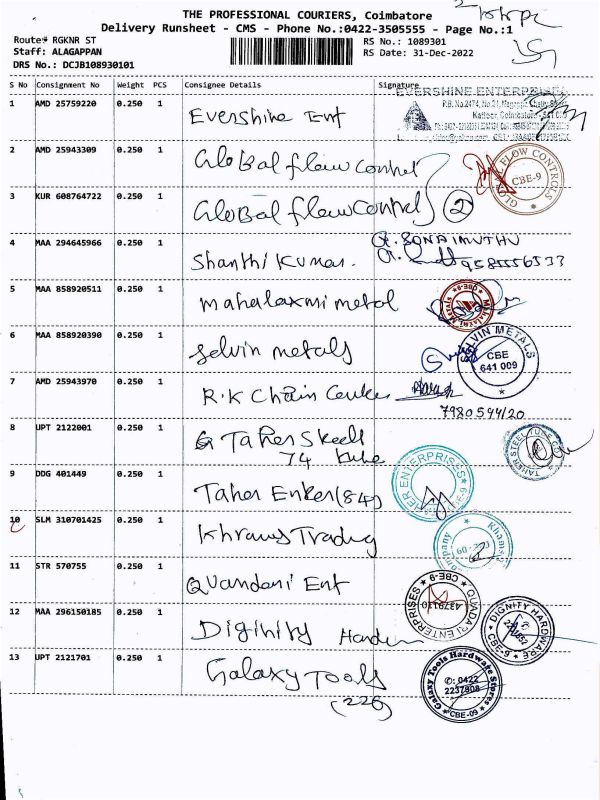 THE PROFESSIONAL COURIERS, Coimbatore
Delivery Runsheet - CMS - Phone No.:0422-3505555 - Page No.:1
Route# RGKNR ST
Staff: ALAGAPPAN
DRS No.: DCJB108930101
RS No.: 1089301
RS Date: 31-Dec-2022
S No Consignment No Weight PCS Consignee Details Signature
1 AMD 25759220 0.250 1 Evershine Ent
EVERSHINE ENTERPRISES
2 AMD 25943309 0.250 1 Global flow control
GLOBAL FLOW CONTROLS CBE-9
3 KUR 608764722 0.250 1 Global flow control 2
4 MAA 294645966 0.250 1 Shanthi Kumar.
5 MAA 858920511 0.250 1 mahalaxmi metal
CBE-9
6 MAA 858920390 0.250 1 selvin metals
SELVIN METALS CBE 641 009
7 AMD 25943970 0.250 1 R.K Chain
8 UPT 2122001 0.250 1 Taher Steels
74
TAHER STEEL TUBE
9 DDG 401449 0.250 1 Taher Enter (84)
TAHER ENTERPRISES
10 SLM 310701425 0.250 1 Trading
Company
11 STR 570755 0.250 1 Quandani Ent
ENTERPRISES CBE-9
12 MAA 296150185 0.250 1 Diginity
DIGNITY HARDWARE CBE-9
13 UPT 2121701 0.250 1 Galaxy Tools
(226)
Galaxy Tools Hardware Stores
✆: 0422
2237808
CBE-09